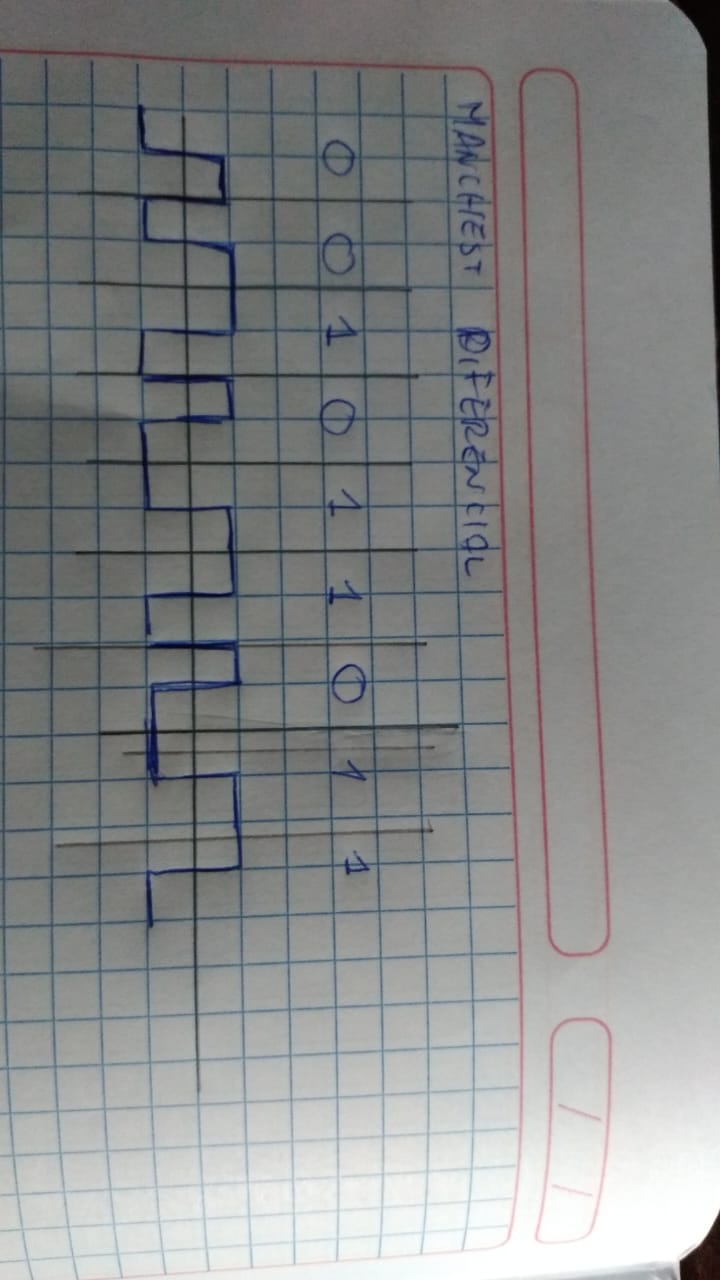 MANCHEST DIFERENCIAL
0 0 1 0 1 1 0 1 1